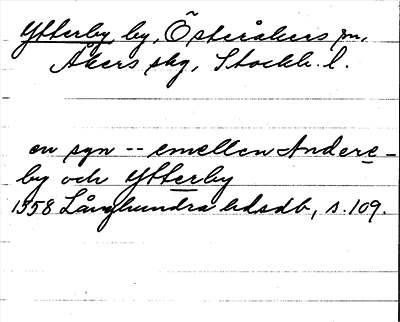 Ytterby, by, Österåkers sn,
Åkers skg, Stockh. l.
en syn -- emellen Andere-
by och Ytterby
1558 Långhundra hdsdb, s. 109.